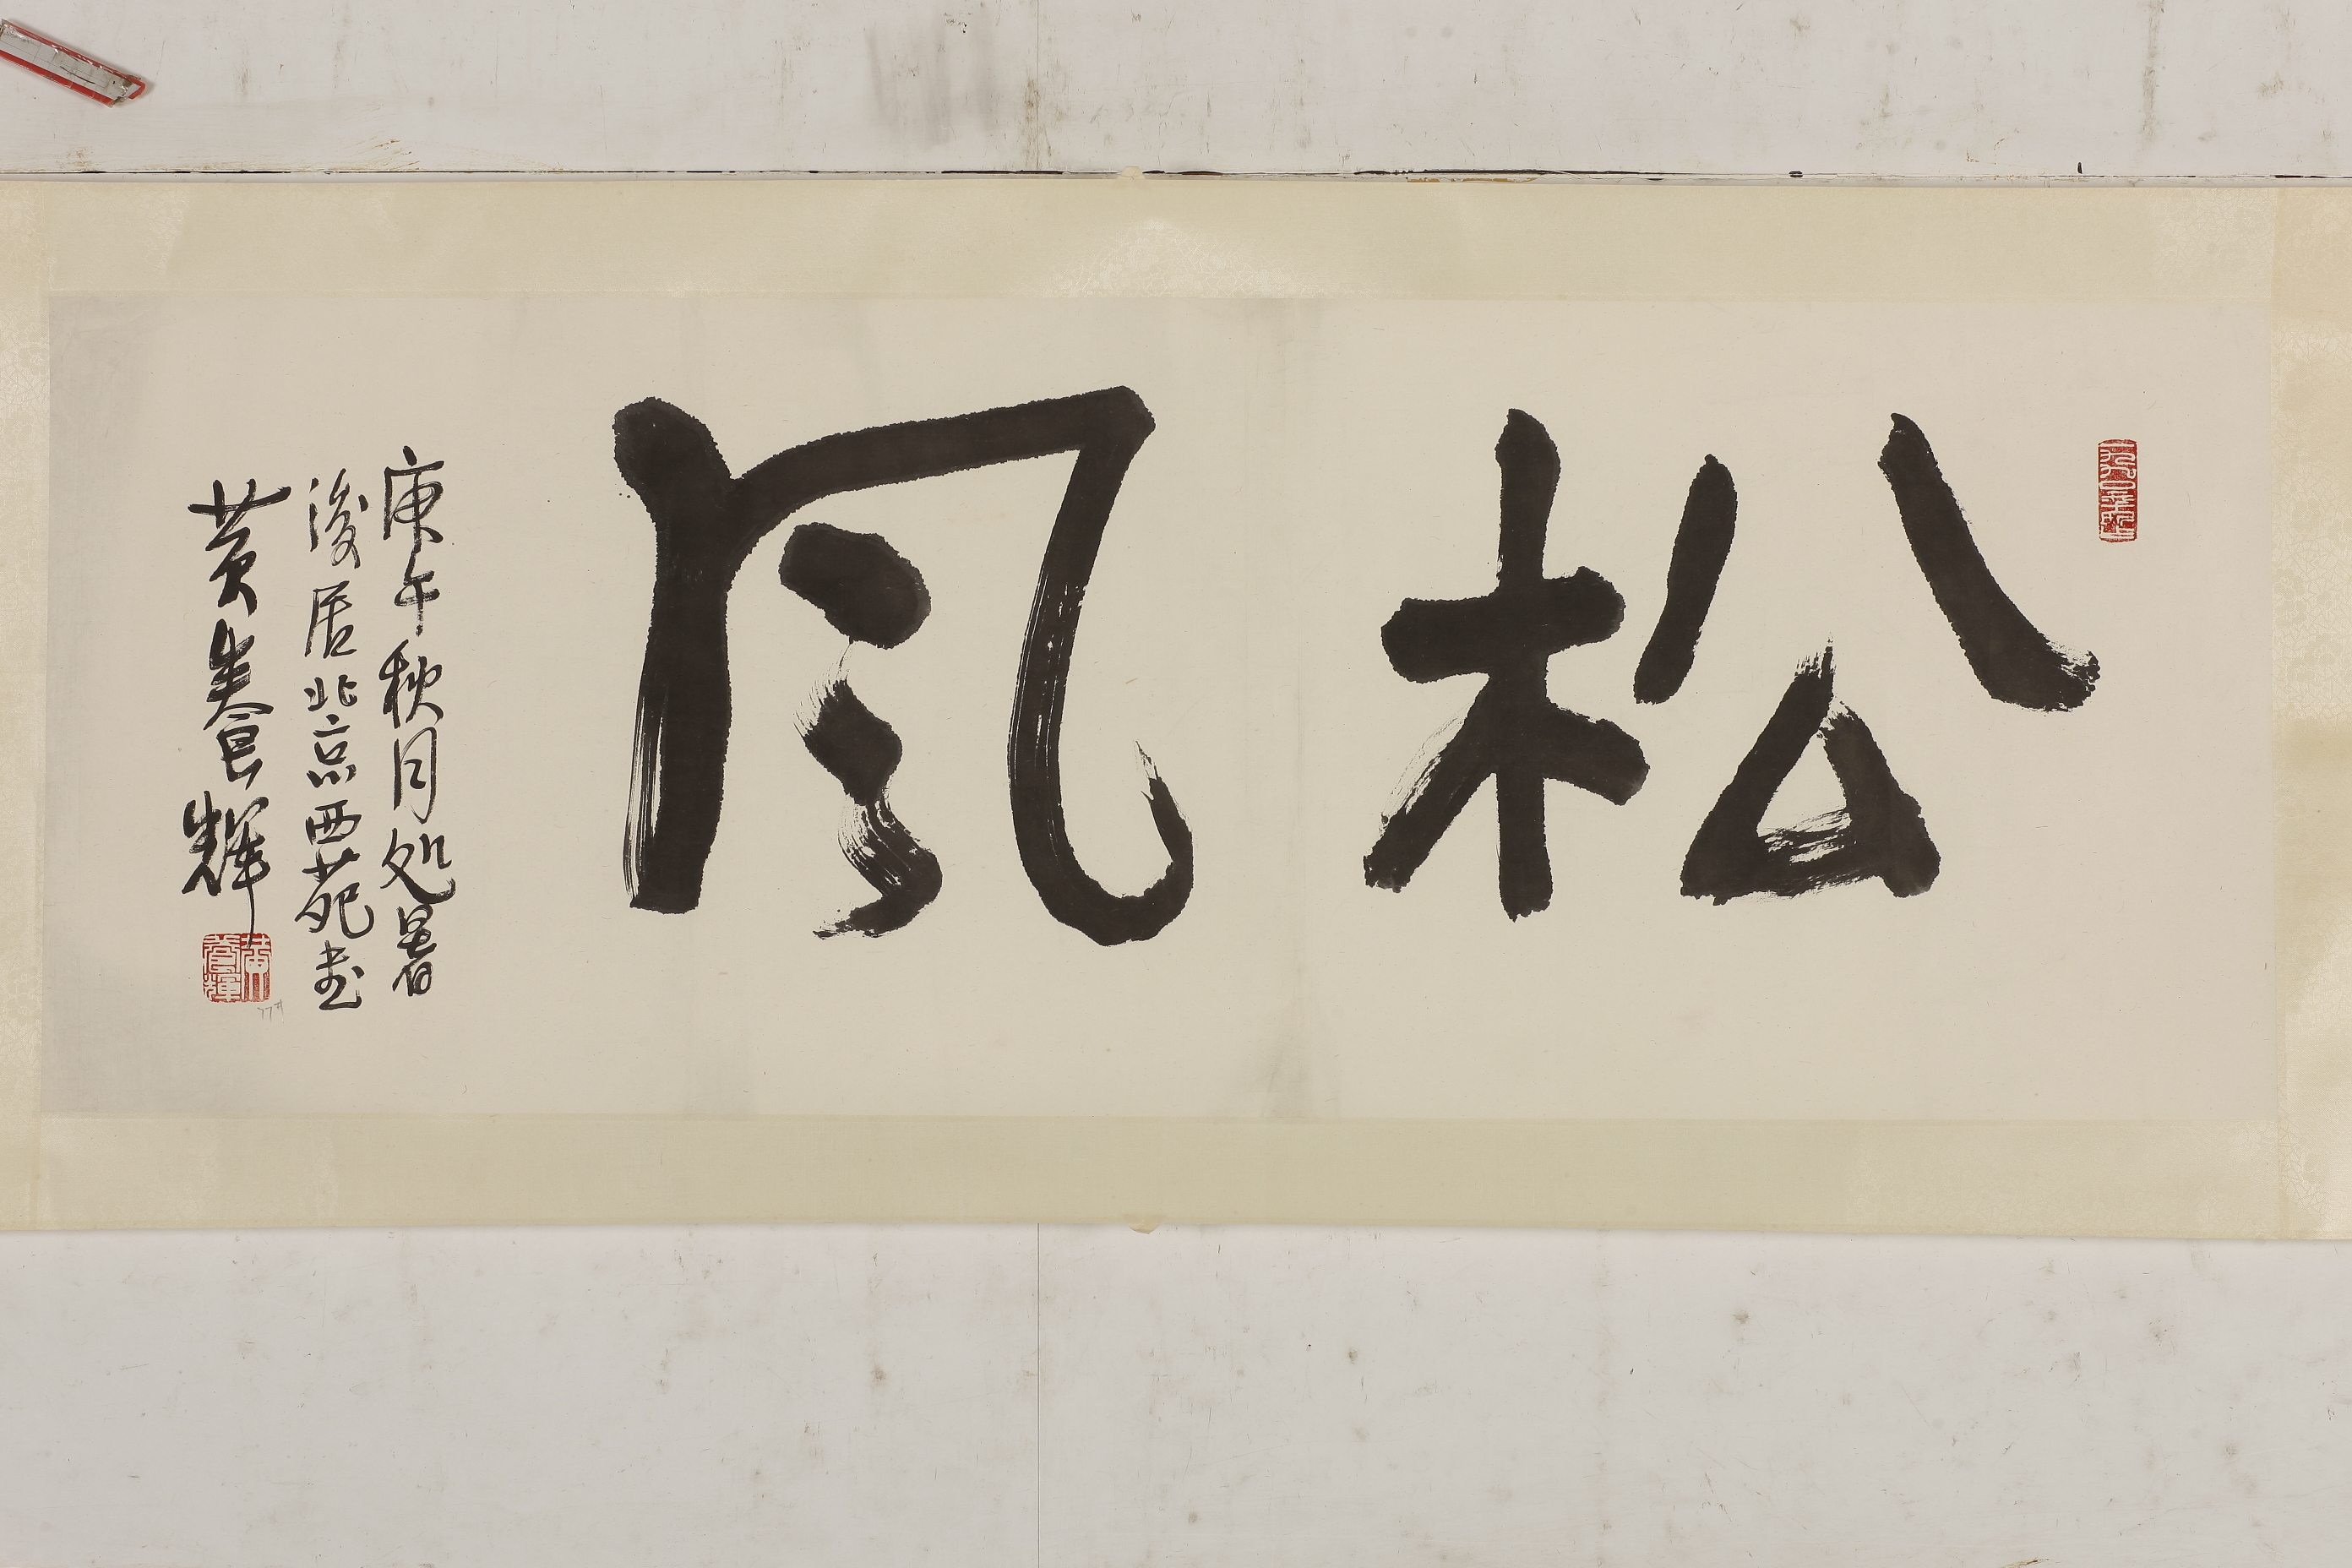 松风
庚午秋月处暑
後居北京西苑书
黄养辉
黄養輝